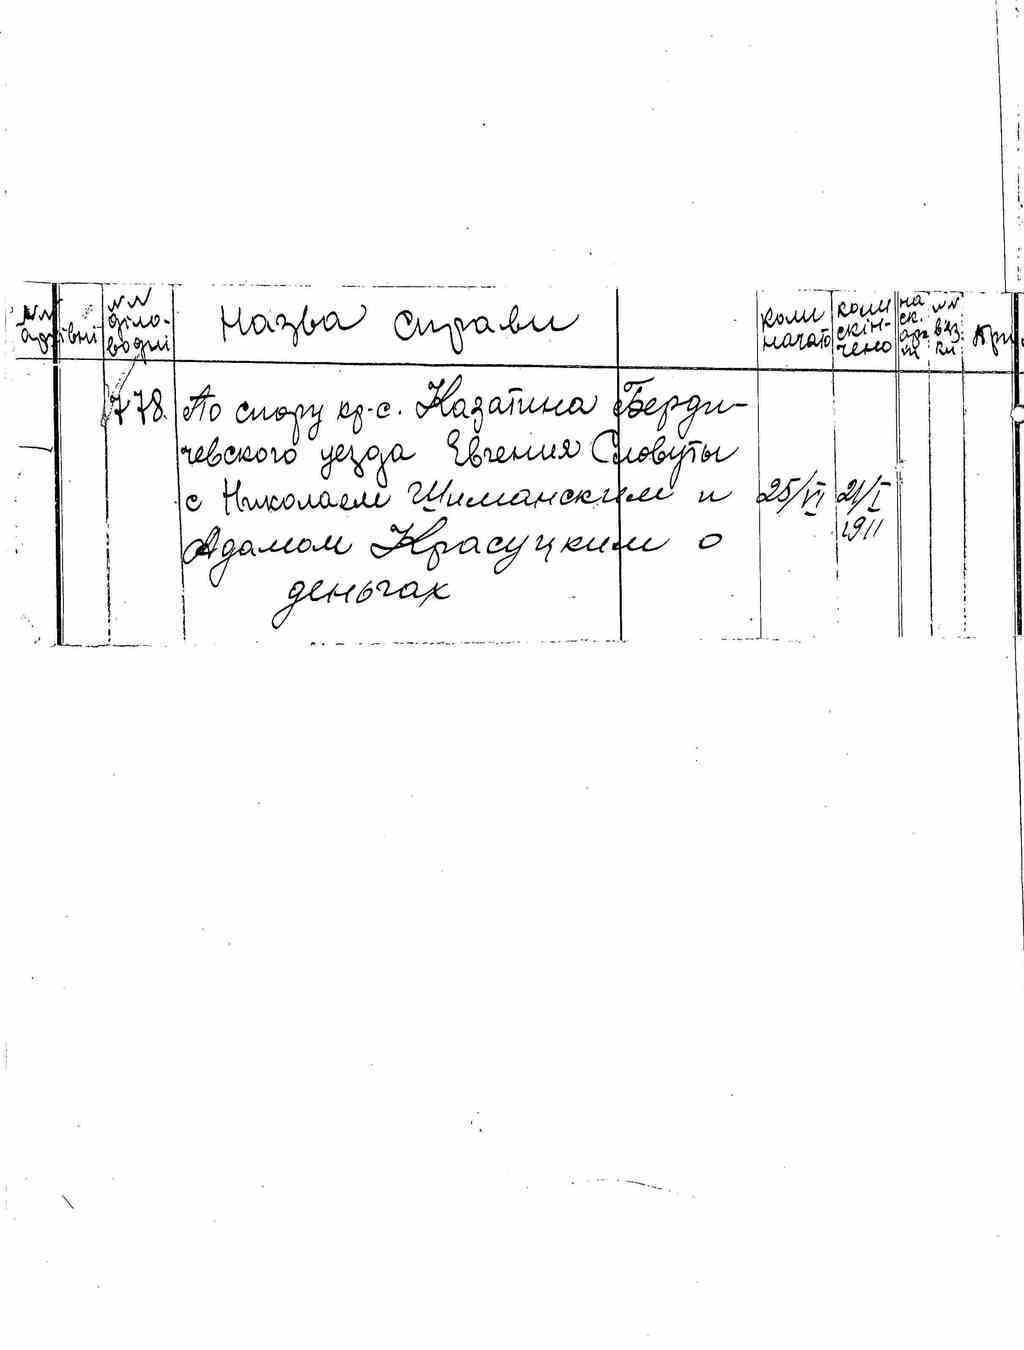 №№ архівні
№№ діло-
водні
Назва справи
коли
начато
коли
скін-
чено
на
ск.
арк
№№
778. По спору кр-с. Казатина Берди-
чевского уезда Евгения Словуты
с Николаем Шиманским и
Адамом Красуцким о
деньгах
25/VI
21/I
1911